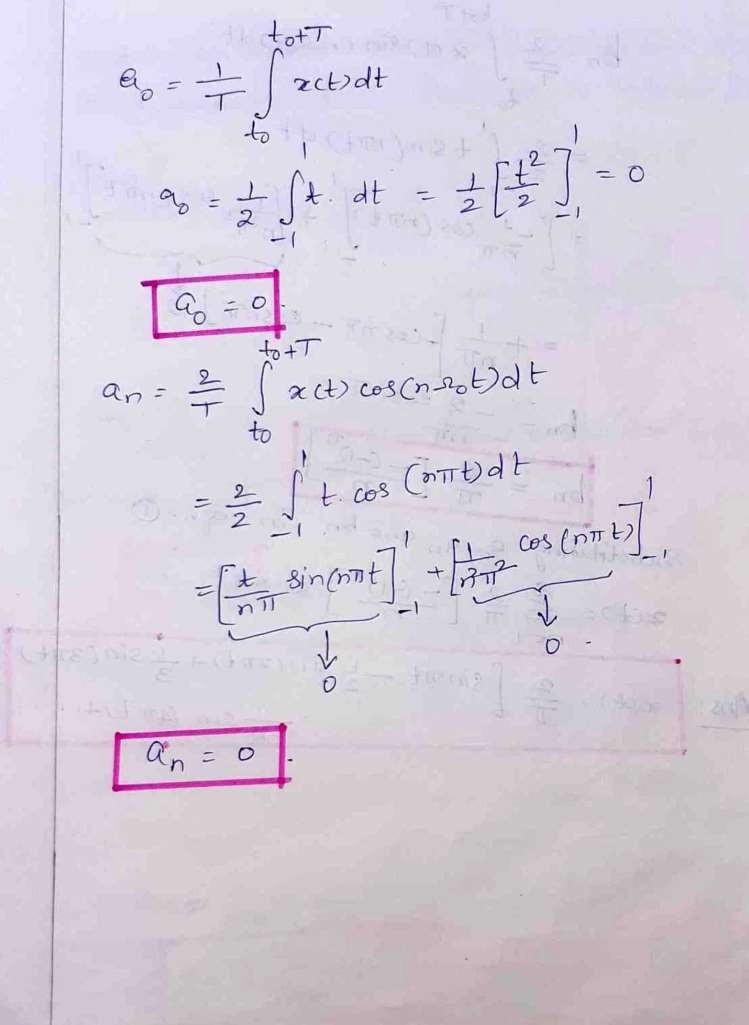 a₀ = 1/T ∫_{t₀}^{t₀+T} x(t) dt
a₀ = 1/2 ∫_{-1}^{1} t. dt = 1/2 [t²/2]_{-1}^{1} = 0
a₀ = 0.
aₙ = 2/T ∫_{t₀}^{t₀+T} x(t) cos(nΩ₀t) dt
= 2/2 ∫_{-1}^{1} t. cos (nπt) dt
= [t/nπ sin(nπt]_{-1}^{1} + [1/n²π² cos(nπt)]_{-1}^{1}
↓ 0 ↓ 0.
aₙ = 0.